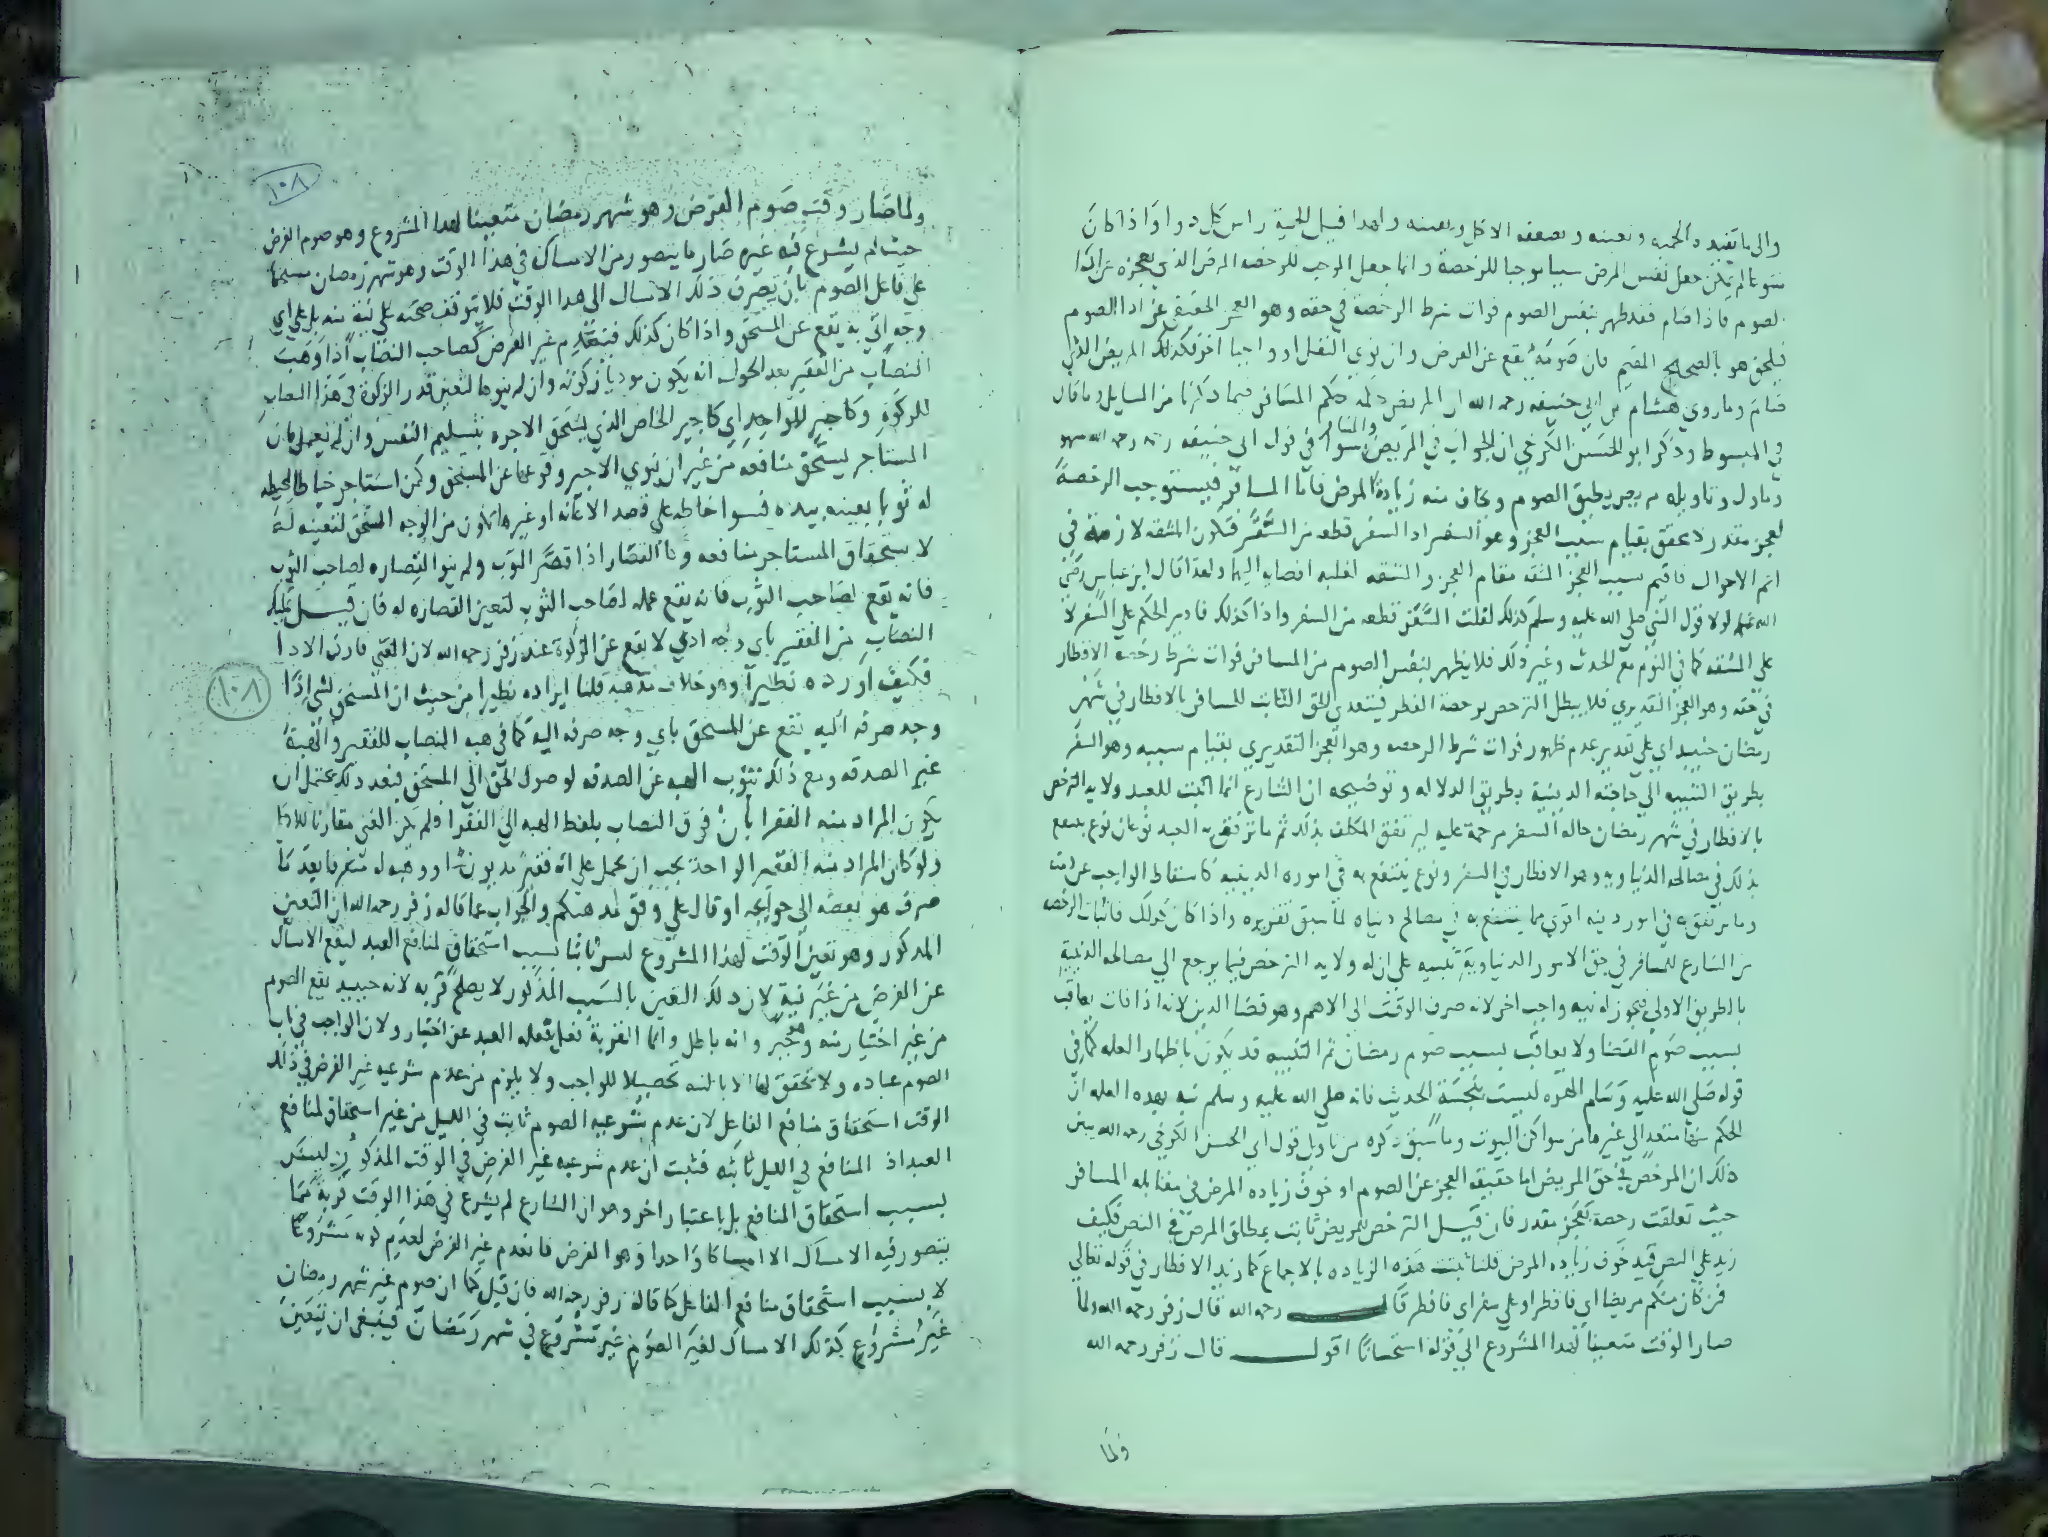 والى ما تفيد الحميه وبعينه ويضعفه الاكل وبعينه ولهذا قيل الحمية راس كل دوا واذا كان
متنوعا لم يمكن جعل نفس المرض سببا موجبا للرخصة وانما جعل الموجب للرخصه المرض الذي يعجزه عن اداء
الصوم فاذا صام فقد ظهر بنفس الصوم فوات شرط الرخصة في حقه وهو العجز الحقيقي عن اداء الصوم
فيلحق هو بالصحيح المقيم فان صومه يقع عن الفرض وان نوي النفل او واجبا اخر فكذلك المريض الذي
صام وما روي هشام عن ابي حنيفه رحمه الله ان المريض حكمه حكم المسافر فيما ذكرنا من المسايل وما قال
في المبسوط وذكر ابو الحسن الكرخي ان الجواب في المريض والمسافر سوا في قول ابي حنيفه رحمه الله سهو
وماول وتاويله مريض يطيق الصوم ويخاف منه زيادة المرض فاما المسافر فيستوجب الرخصة
لعجز مقدر لا محقق بقيام سبب العجز وهو السفر اذ السفر قطعه من السقر فتكون المشقه لازمة في
اعم الاحوال فاقيم سبب العجز المشقه مقام العجز والمشقه لغلبه افضايه اليها ولهذا قال ابن عباس رضي
الله عنهما لولا قول النبي صلي الله عليه وسلم كذلك لقلت السقر قطعه من السفر واذا كذلك فادير الحكم علي السفر لا
علي المشقه كما في النوم مع الحدث وغير ذلك فلا يظهر بنفس الصوم من المسافر فوات شرط رخصه الافطار
في حقه وهو العجز التقديري فلا يبطل الترخص برخصة الفطر فيتعدي الحق الثابت للمسافر بالافطار في شهر
رمضان حينيذ اي علي تقدير عدم ظهور فوات شرط الرخصه وهو العجز التقديري بقيام سببه وهو السفر
بطريق التنبيه الي حاجته الدينية بطريق الدلاله وتوضيحه ان الشارع انما اثبت للعبد ولايه الترخص
بالافطار في شهر رمضان حاله السفر مرحمة عليه ليرتفق المكلف بذلك ثم ما ترفق به العبد نوعان نوع ينتفع
بذلك في مصالحه الدنياويه وهو الافطار في السفر ونوع ينتفع به في اموره الدينيه كاسقاط الواجب عن ذمته
وما يرتفق به في امور دينه اقوي مما ينتفع به في مصالح دنياه لما سبق تقريره واذا كان كذلك فاثبات الرخصه
من الشارع للمسافر في حق الامور الدنياوية تنبيه علي ان له ولايه الترخص فيما يرجع الي مصالحه الدينية
بالطريق الاولي فيجوز له نيه واجب اخر لانه صرف الوقت الى الاهم وهو قضا الدين لانه اذا فات يعاقب
بسبب صوم القضا ولا يعاقب بسبب صوم رمضان ثم التنبيه قد يكون باظهار العله كما في
قوله صلي الله عليه وسلم الهره ليست بنجسة الحديث فانه صلي الله عليه وسلم نبه بهذه العله ان
الحكم متعد الي غيرها من سواكن البيوت وما سبق ذكره من تاويل قول ابي الحسن الكرخي رحمه الله يبين
ذلك ان المرخص في حق المريض اما حقيقه العجز عن الصوم او خوف زياده المرض في مقابله المسافر
حيث تعلقت رخصة بعجز مقدر فان قيل الترخص للمريض ثابت بمطلق المرض في النص فكيف
زيد علي النص قيد خوف زياده المرض قلنا ثبتت هذه الزياده بالاجماع كما زيد الافطار في قوله تعالي
فمن كان منكم مريضا اي فافطر او علي سفر اي فافطر قال رحمه الله قال زفر رحمه الله ولما
صار الوقت متعينا لهذا المشروع الي قوله استحسانا اقول قال زفر رحمه الله
ولما
١٠٨
ولما صار وقت صوم الفرض وهو شهر رمضان متعينا لهذا المشروع وهو صوم الفرض
حيث لم يشرع فيه غيره صار ما يتصور من الامساك في هذا الوقت وهو شهر رمضان مستحقا
علي فاعل الصوم بان يصرف ذلك الامساك الى هذا الوقت فلا يتوقف صحته علي نية منه بل علي اي
وجه اتي به يقع عن المستحق واذا كان كذلك فينعدم غير الفرض كصاحب النصاب اذا وهب
النصاب من الفقير بعد الحول انه يكون موديا زكوته وان لم ينوها لتعين قدر الزكوة في هذا النصاب
للزكوة وكاجير الواحد اي كاجير الخاص الذي يستحق الاجره بتسليم النفس وان لم يعمل فان
المستاجر يستحق منافعه من غير ان ينوي الاجير وقوعها عن المستحق وكمن استاجر خياطا ليخيط
له ثوبا بعينه بيده فسوا خاطه علي قصد الاعانه او غيرها تكون من الوجه المستحق لتعينه له
لاستحقاق المستاجر منافعه وكالقصار اذا قصر الثوب ولم ينو القصاره لصاحب الثوب
فانه يقع لصاحب الثوب فانه يقع عمله لصاحب الثوب لتعين القصاره له فان قيل تمليك
النصاب من الفقير باي وجه ادي لا يقع عن الزكوة عند زفر رحمه الله لان الغني قارن الادا
فكيف اورده نظيرا وهو خلاف مذهبه قلنا ايراده نظيرا من حيث ان المستحق لشي اذا
١٠٨
وجد صرفه اليه يقع عن المستحق باي وجه صرفه اليه كما في هبه النصاب للفقير والهبة
غير الصدقه ومع ذلك تنوب الهبه عن الصدقه لوصول الحق الي المستحق فبعد ذلك يحتمل ان
يكون المراد منه الفقرا بان فرق النصاب بلفظ الهبه الي الفقرا فلم يكن الغني مقارنا للادا
ولو كان المراد منه الفقير الواحد يجب ان يحمل علي انه فقير مديون او وهبه له متفرقا بعد ما
صرفه هو بعضه الي حوايجه او قال علي وفق مذهبكم والجواب عما قاله زفر رحمه الله ان التعين
المذكور وهو تعين الوقت لهذا المشروع ليس ثابتا بسبب استحقاق لمنافع العبد ليقع الامساك
عن الفرض من غير نية لان ذلك التعين بالسبب المذكور لا يصلح قربه لانه حينيذ يقع الصوم
من غير اختيار منه وهو جبر وانه باطل وانما القربة فعل يفعله العبد عن اختيار ولان الواجب في باب
الصوم عباده ولا تحقق لها الا بالنيه تحصيلا للواجب ولا يلزم من عدم شرعيه غير الفرض في ذلك
الوقت استحقاق منافع الفاعل لان عدم شرعيه الصوم ثابت في الليل من غير استحقاق لمنافع
العبد اذ المنافع في الليل ثابته فثبت ان عدم شرعيه غير الفرض في الوقت المذكور ليس
بسبب استحقاق المنافع بل باعتبار اخر وهو ان الشارع لم يشرع في هذا الوقت قربة مما
يتصور فيه الامساك الا امساكا واحدا وهو الفرض فانعدم غير الفرض لعدم كونه مشروعا
لا بسبب استحقاق منافع الفاعل كما قاله زفر رحمه الله فان قيل كما ان صوم غير شهر رمضان
غير مشروع كذلك الامساك لغير الصوم غير مشروع في شهر رمضان فينبغي ان يتعين